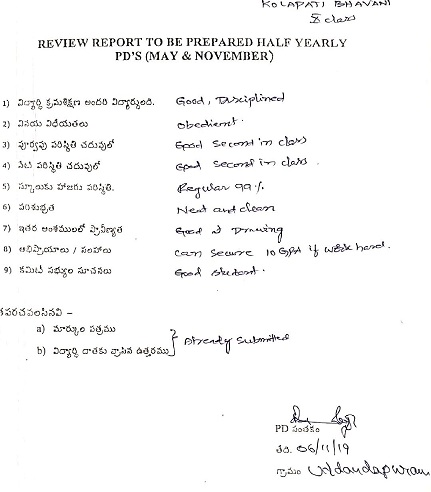 KOLAPATI BHAVANI
X class
REVIEW REPORT TO BE PREPARED HALF YEARLY
PD'S (MAY & NOVEMBER)
1) విద్యార్థి క్రమశిక్షణ అందరి విద్యార్థులది. Good, Disciplined
2) వినయ విధేయతలు obedient.
3) పూర్వపు పరిస్థితి చదువులో Good Second in class
4) నేటి పరిస్థితి చదువులో Good Second in class.
5) స్కూలుకు హాజరు పరిస్థితి. Regular 99%
6) పరిశుభ్రత Neat and clean
7) ఇతర అంశములలో ప్రావీణ్యత Good at Drawing
8) అభిప్రాయాలు / సలహాలు can secure 10 GPA if work hard.
9) కమిటీ సభ్యుల సూచనలు Good student.
తపరచవలసినవి –
a) మార్కుల పత్రము
b) విద్యార్థి దాతకు వ్రాసిన ఉత్తరము } Already submitted
PD సంతకం
తేది. 06/11/19
గ్రామం Uddandapuram